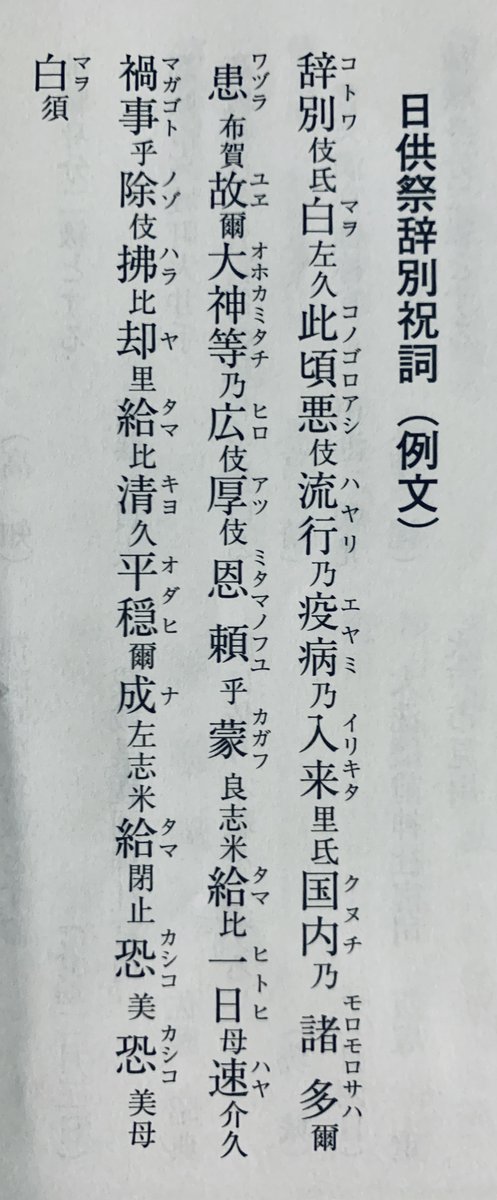 日供祭辞別祝詞（例文）
コトワ マヲ コノゴロアシ ハヤリ エヤミ イリキタ クヌチ モロモロサハ
辞別伎氐白左久此頃悪伎流行乃疫病乃入来里氐国内乃諸多爾
ワヅラ ユヱ オホカミタチ ヒロ アツ ミタマノフユ カガフ タマ ヒトヒ ハヤ
患布賀故爾大神等乃広伎厚伎恩頼乎蒙良志米給比一日母速介久
マガゴト ノゾ ハラ ヤ タマ キヨ オダヒ ナ タマ カシコ カシコ
禍事乎除伎拂比却里給比清久平穏爾成左志米給閉止恐美恐美母
マヲ
白須